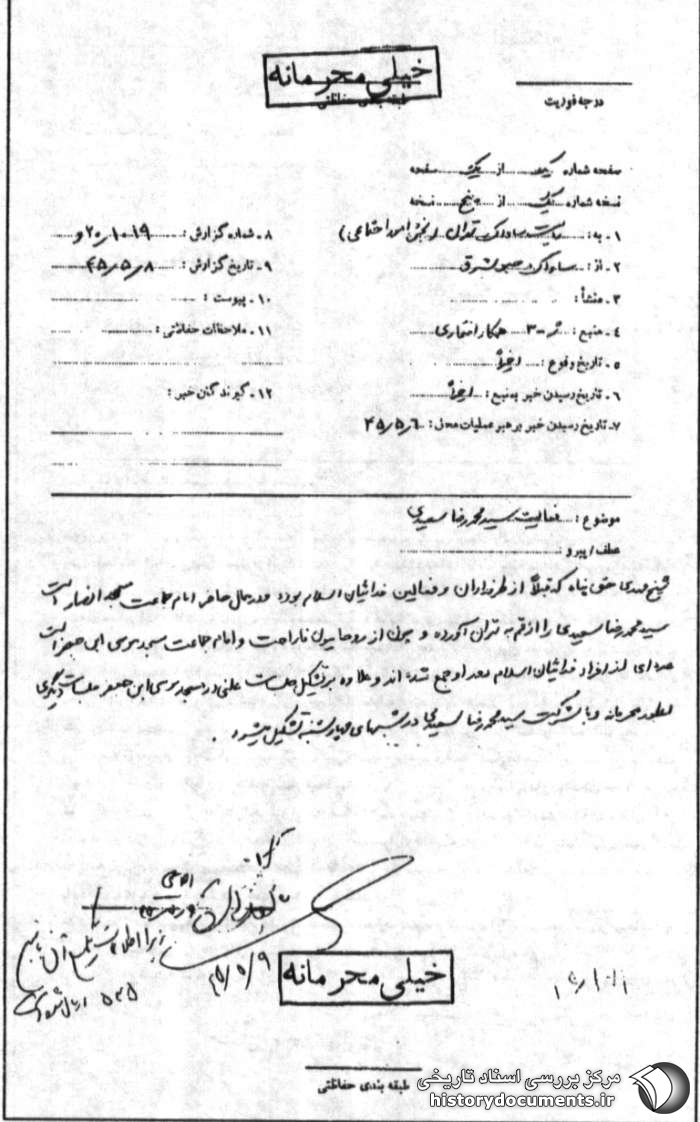 خیلی محرمانه
طبقه بندی حفاظتی
درجه فوریت
صفحه شماره یک از یک صفحه
نسخه شماره یک از پنج نسخه
۱ - به: ریاست ساواک تهران (بخش امور اجتماعی)
۲ - از: ساواک جنوب شرق
۳ - منشأ:
۴ - منبع: همکار افتخاری
۵ - تاریخ وقوع: اخیراً
۶ - تاریخ رسیدن خبر به منبع: اخیراً
۷ - تاریخ رسیدن خبر برهبر عملیات محل: ۴۵/۵/۶
۸ - شماره گزارش:
۹ - تاریخ گزارش: ۴۵/۵/۸
۱۰ - پیوست:
۱۱ - ملاحظات حفاظتی:
۱۲ - گیرندگان خبر:
موضوع: فعالیت سید محمد رضا سعیدی
عطف / پیرو
شیخ مهدی حق پناه که قبلاً از طرفداران و فعالین فدائیان اسلام بوده و در حال حاضر امام جماعت مسجد انصار است
سید محمد رضا سعیدی را از قم به تهران آورده و چون از روحانیون ناراحت و امام جماعت مسجد موسی ابن جعفر است
عده ای از افراد فدائیان اسلام دور او جمع شده اند و علاوه بر تشکیل جلسات علنی در مسجد موسی ابن جعفر جلسات دیگری
بطور محرمانه و با شرکت سید محمد رضا سعیدی در شبهای چهارشنبه تشکیل میشود.
۴۵/۵/۹
خیلی محرمانه
طبقه بندی حفاظتی
مرکز بررسی اسناد تاریخی
historydocuments.ir